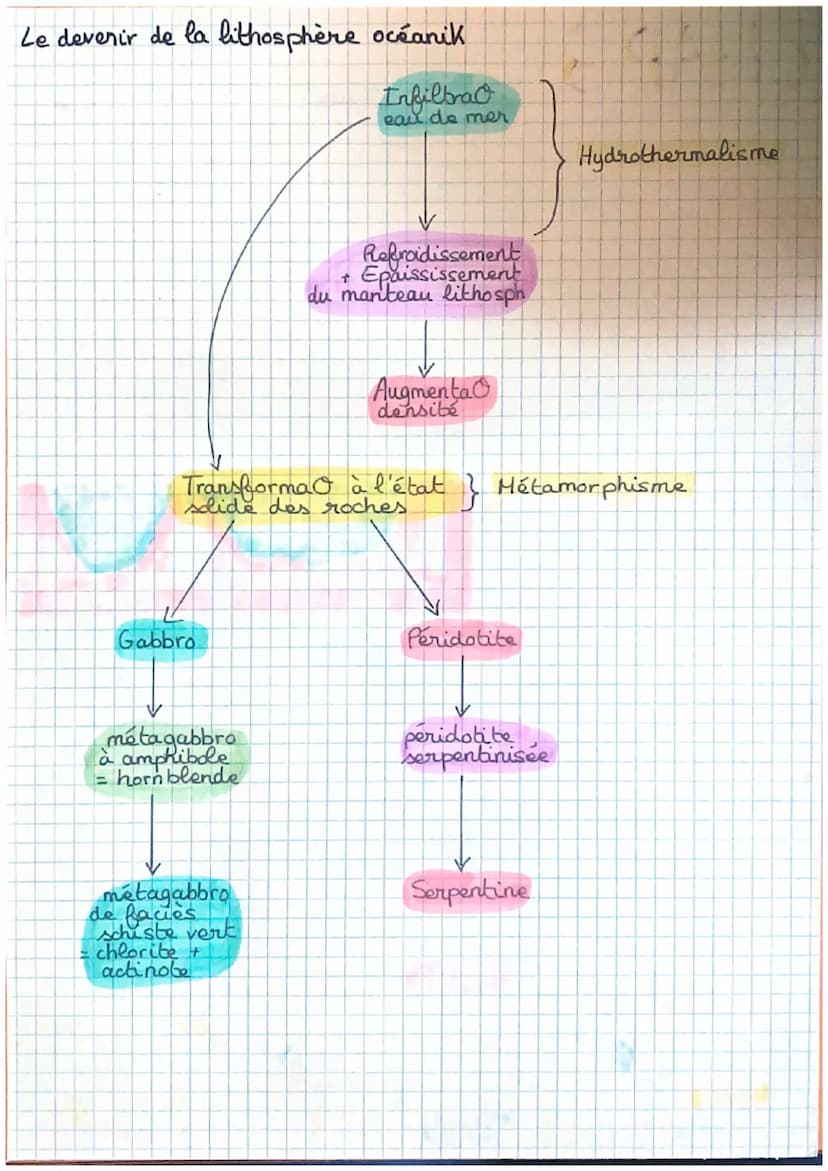 Le devenir de la lithosphère océanik
InfiltraO
eau de mer
Hydrothermalisme
Refroidissement
+ Epaississement
du manteau lithosph
AugmentaO
densité
TransformaO à l'état } Métamorphisme
solide des roches
Gabbro
Péridotite
métagabbro
à amphibole
= hornblende
péridotite
serpentinisée
métagabbro
de faciès
schiste vert
= chlorite +
actinote
Serpentine